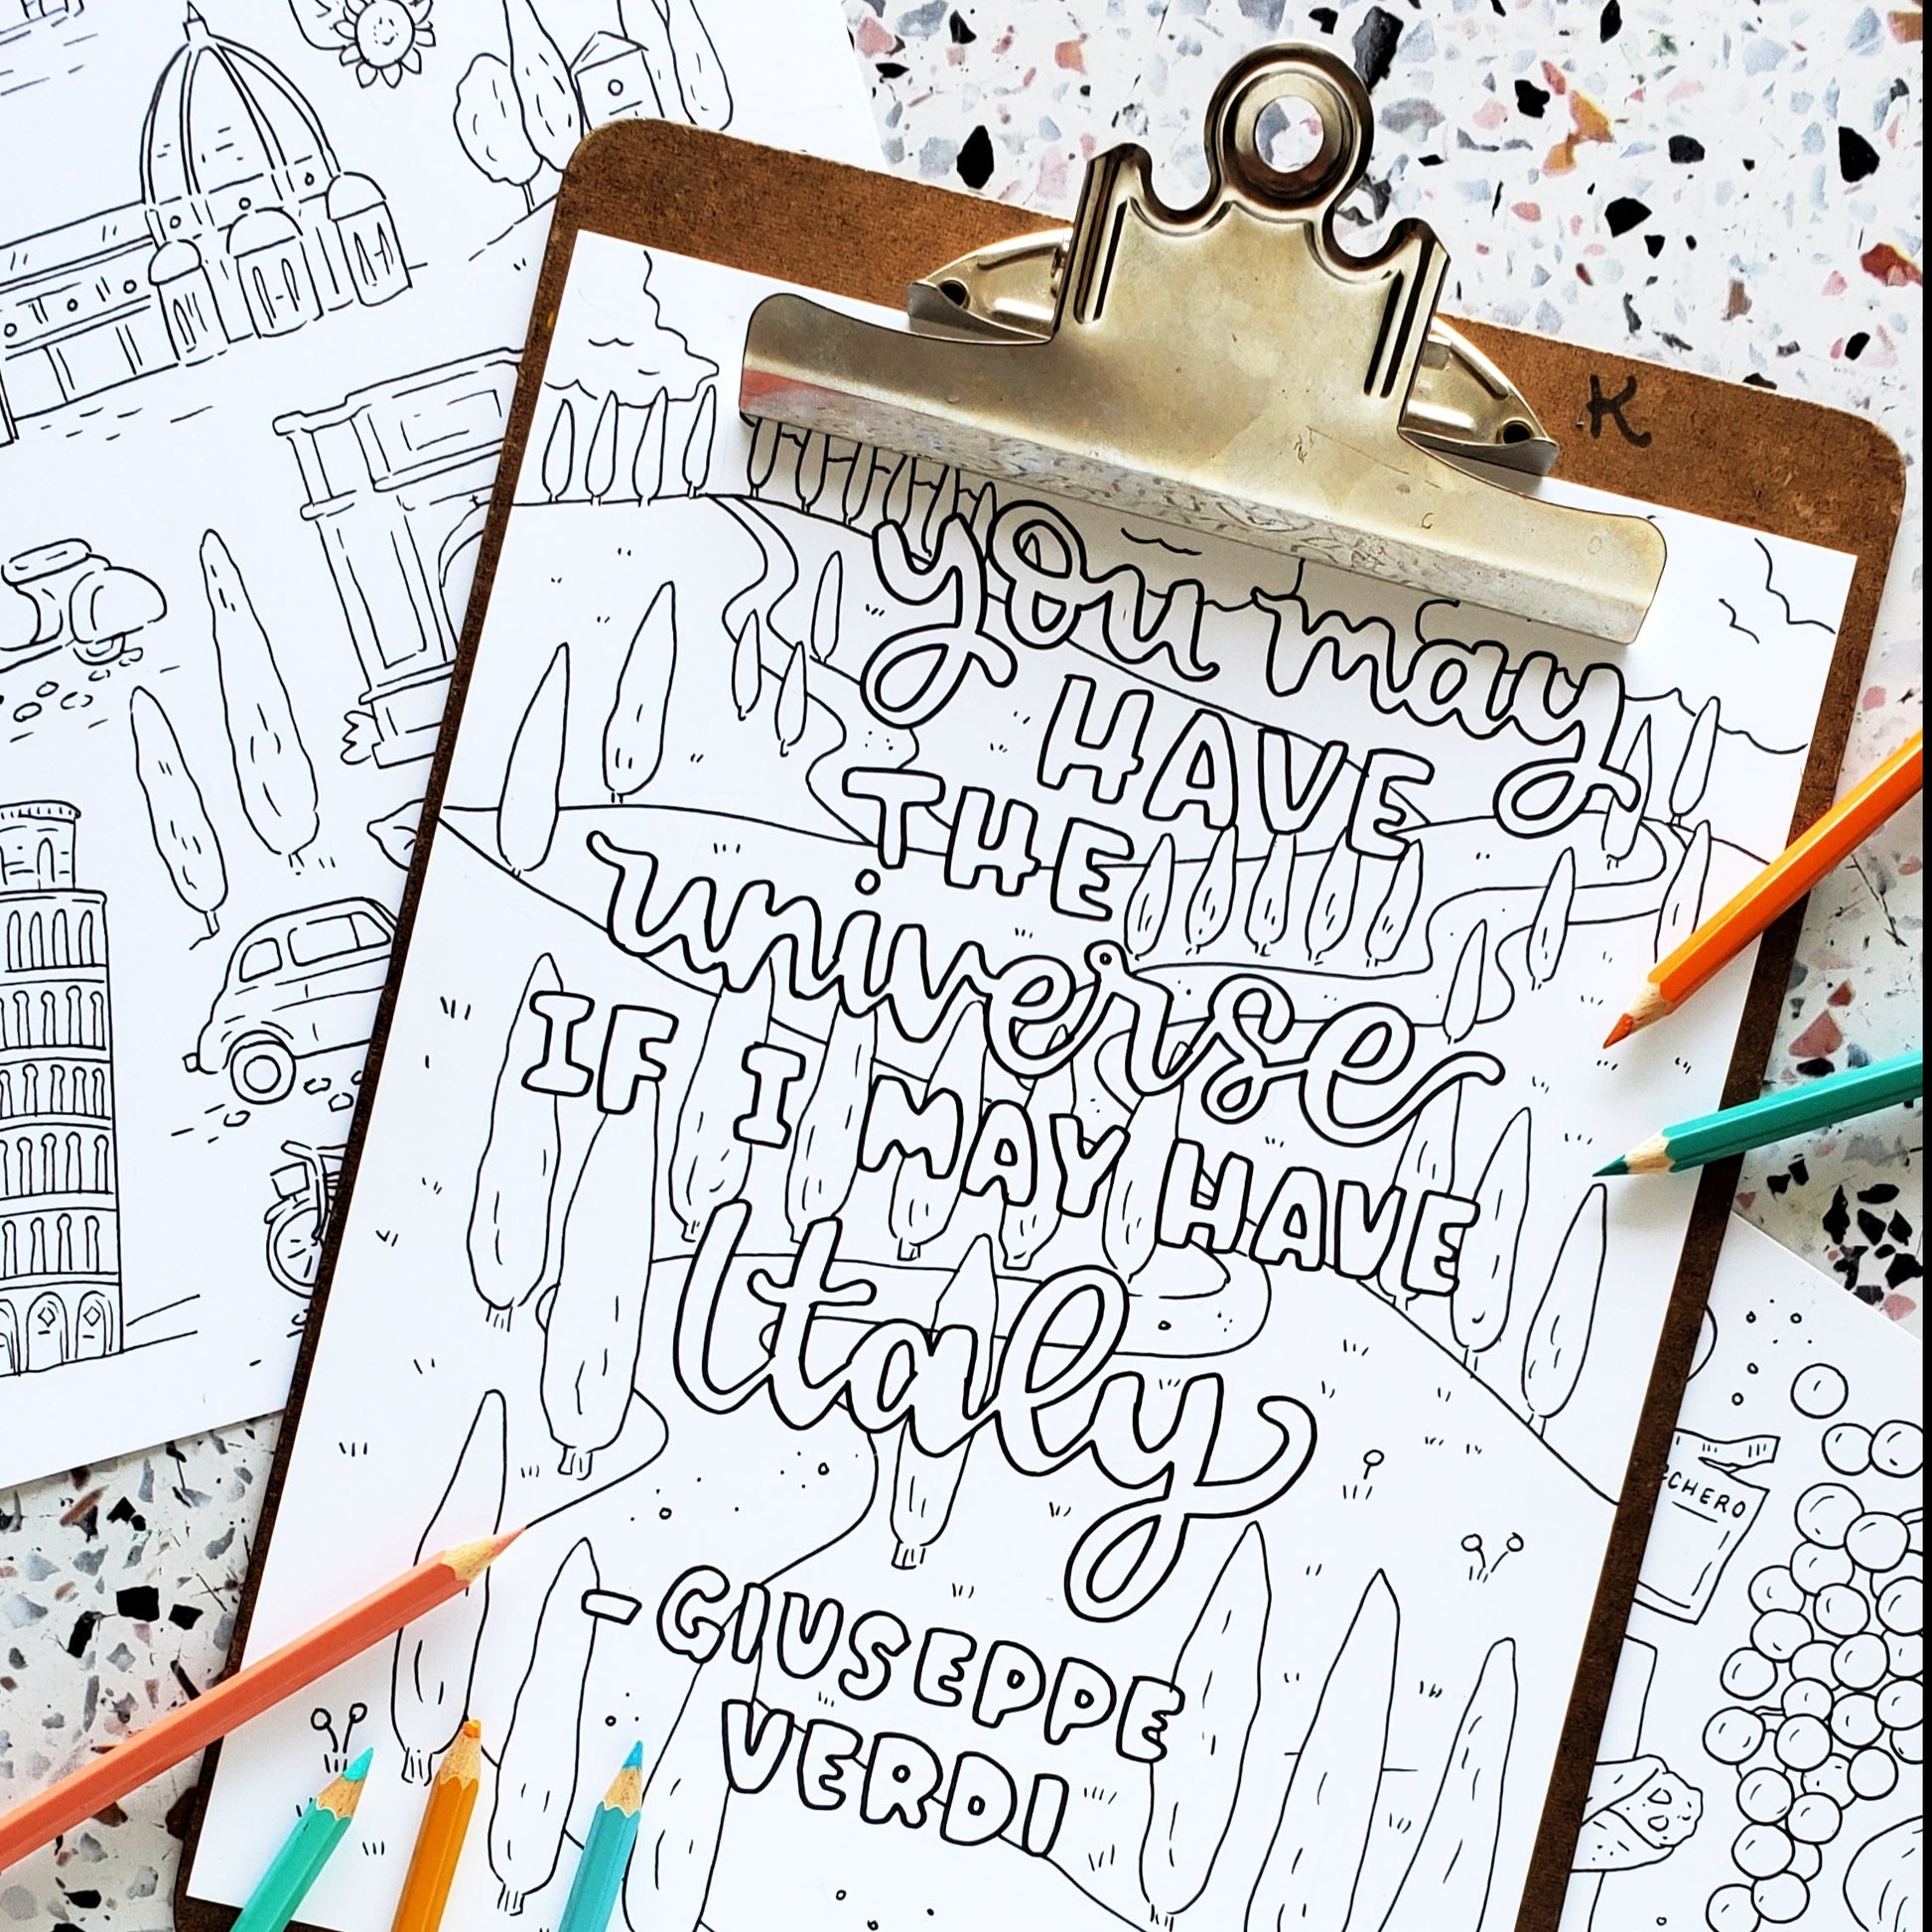 K
you may
HAVE
THE
universe
IF I MAY HAVE
Italy
-GIUSEPPE
VERDI
CCHERO